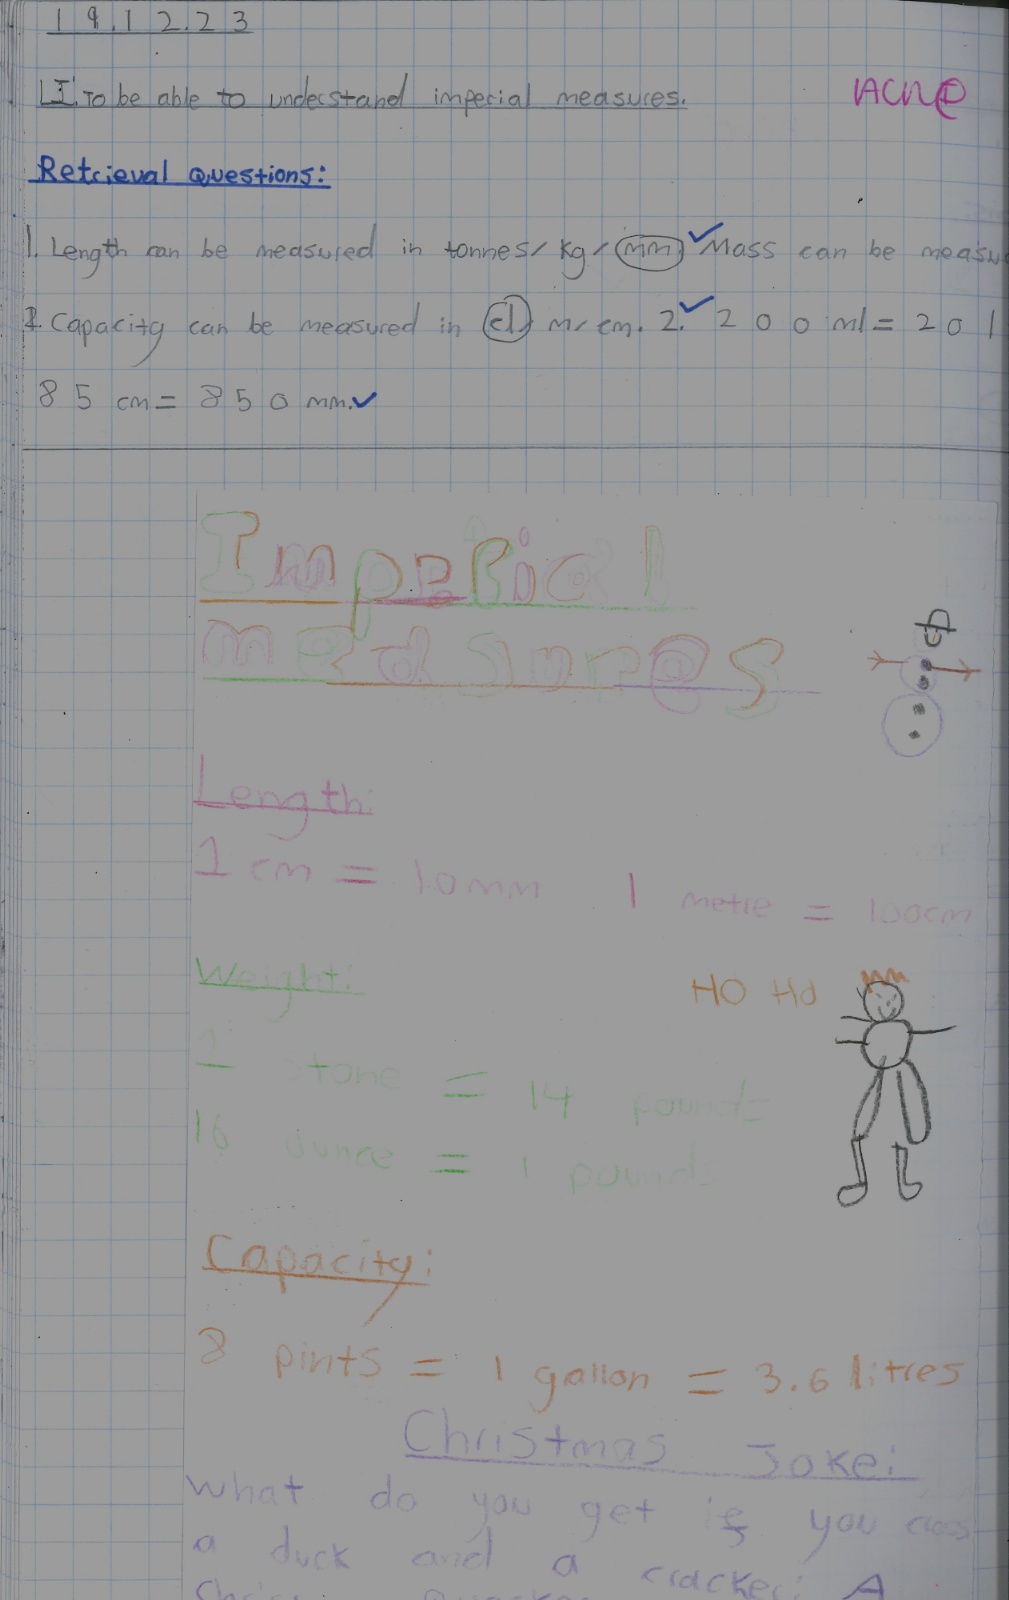 19.12.23
LI: To be able to understand imperial measures.
Retrieval questions:
1. Length can be measured in tonnes/ kg/ mm Mass can be
2. Capacity can be measured in cl m/ cm. 2. 200ml = 20
85 cm = 850 mm.
Imperial
measures
Length:
1 cm = 10mm 1 metre = 100cm
Weight:
HO HO
1 tone = 14 pounds
16 ounce = 1 pound
Capacity:
8 pints = 1 gallon = 3.6 litres
Christmas Joke:
What do you get if you cross
a duck and a cracker: A